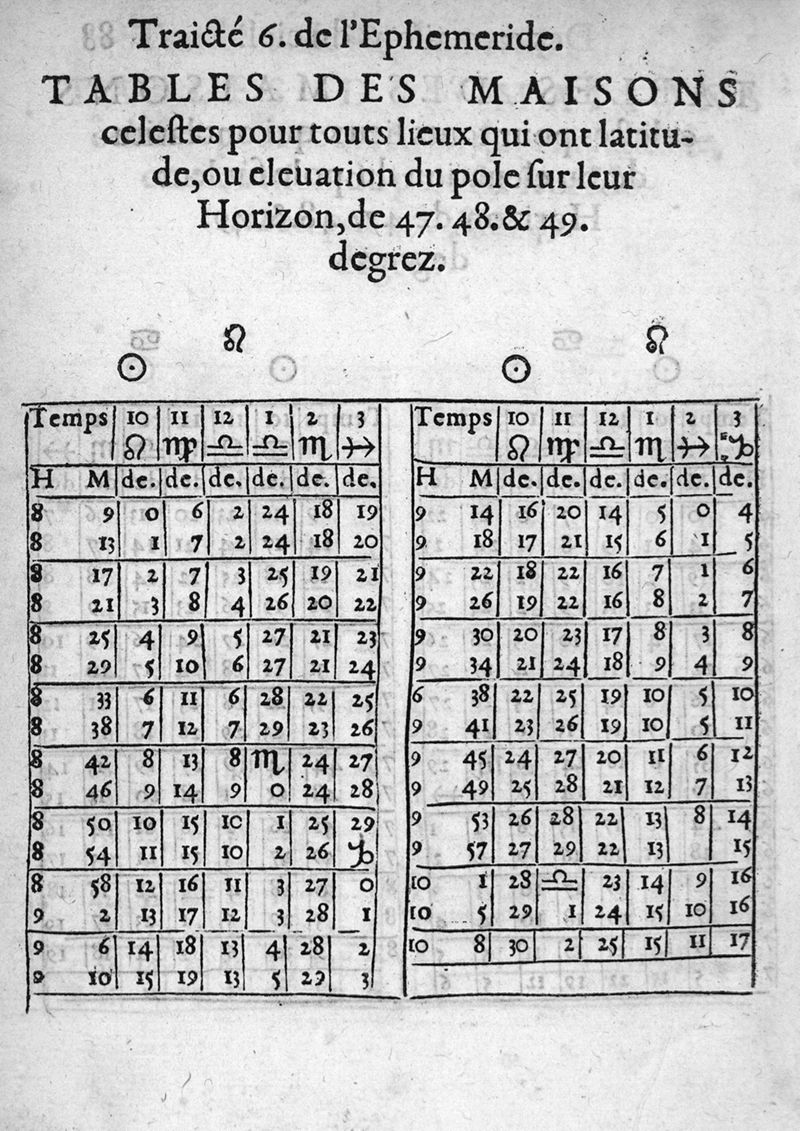 Traicté 6. de l'Ephemeride.
TABLES DES MAISONS
celeſtes pour touts lieux qui ont latitu-
de, ou eleuation du pole ſur leur
Horizon, de 47. 48. & 49.
degrez.
☉ ♌
Temps 10 11 12 1 2 3
♌ ♍ ♎ ♎ ♏ ♐
H M de. de. de. de. de. de.
8 9 0 6 2 24 18 19
8 13 1 7 2 24 18 20
8 17 2 7 3 25 19 21
8 21 3 8 4 26 20 22
8 25 4 9 5 27 21 23
8 29 5 10 6 27 21 24
8 33 6 11 6 28 22 25
8 38 7 12 7 29 23 26
8 42 8 13 8 ♏ 24 27
8 46 9 14 9 0 24 28
8 50 10 15 10 1 25 29
8 54 11 15 10 2 26 ♑
8 58 12 16 11 3 27 0
9 2 13 17 12 3 28 1
9 6 14 18 13 4 28 2
9 10 15 19 13 5 29 3
☉ ♌
Temps 10 11 12 1 2 3
♌ ♍ ♎ ♏ ♐ ♑
H M de. de. de. de. de. de.
9 14 16 20 14 5 0 4
9 18 17 21 15 6 1 5
9 22 18 22 16 7 1 6
9 26 19 22 16 8 2 7
9 30 20 23 17 8 3 8
9 34 21 24 18 9 4 9
6 38 22 25 19 10 5 10
9 41 23 26 19 10 5 11
9 45 24 27 20 11 6 12
9 49 25 28 21 12 7 13
9 53 26 28 22 13 8 14
9 57 27 29 22 13 15
10 1 28 ♎ 23 14 9 16
10 5 29 1 24 15 10 16
10 8 30 2 25 15 11 17